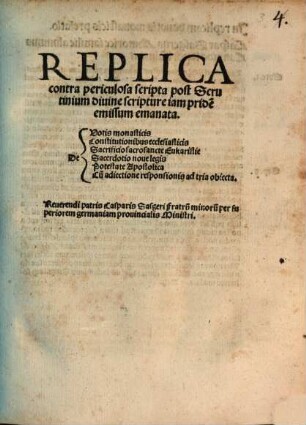 4.
REPLICA
contra periculosa scripta post Scru
tinium diuine scripture iam pridẽ
emissum emanata.
Votis monasticis
Constitutionibus ecclesiasticis
Sacrificio sacrosancte Eukaristie
De Sacerdotio noue legis
Potestate Apostolica
Cũ adiectione responsionis ad tria obiecta.
Reuerendi patris Casparis Sasgeri fratrũ minorũ per su
periorem germaniam prouincialis Ministri.